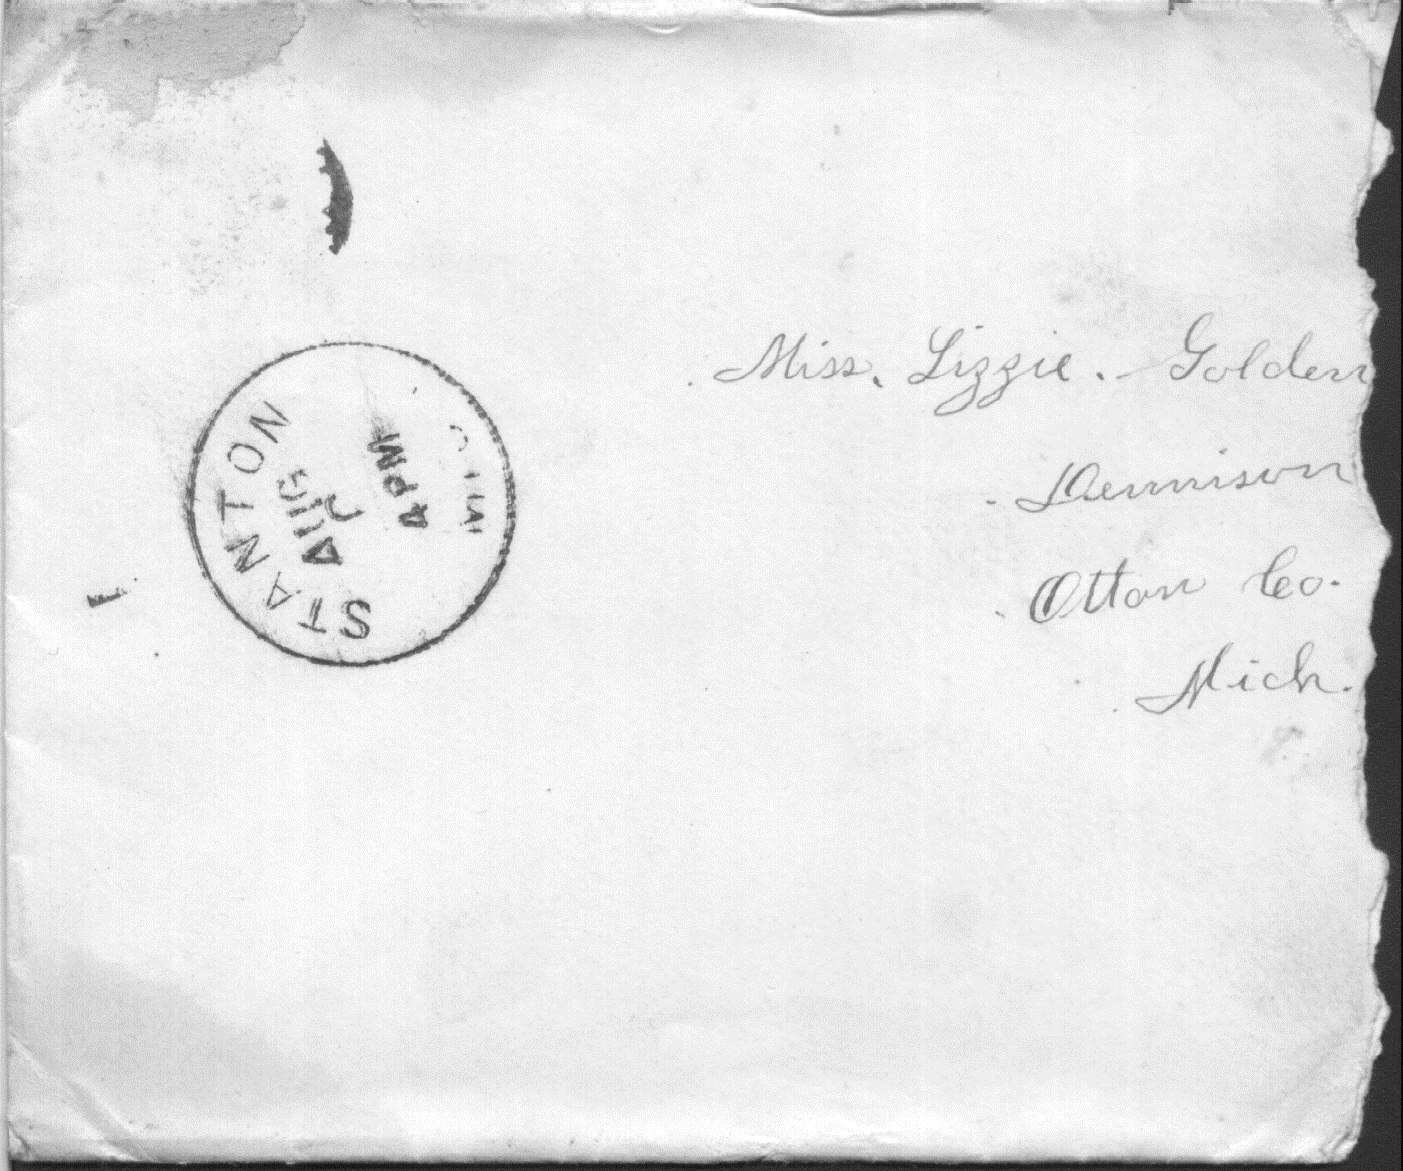 Miss. Lizzie. Golden
Dennison
Ottaw Co.
Mich.
STANTON
AUG
4 PM